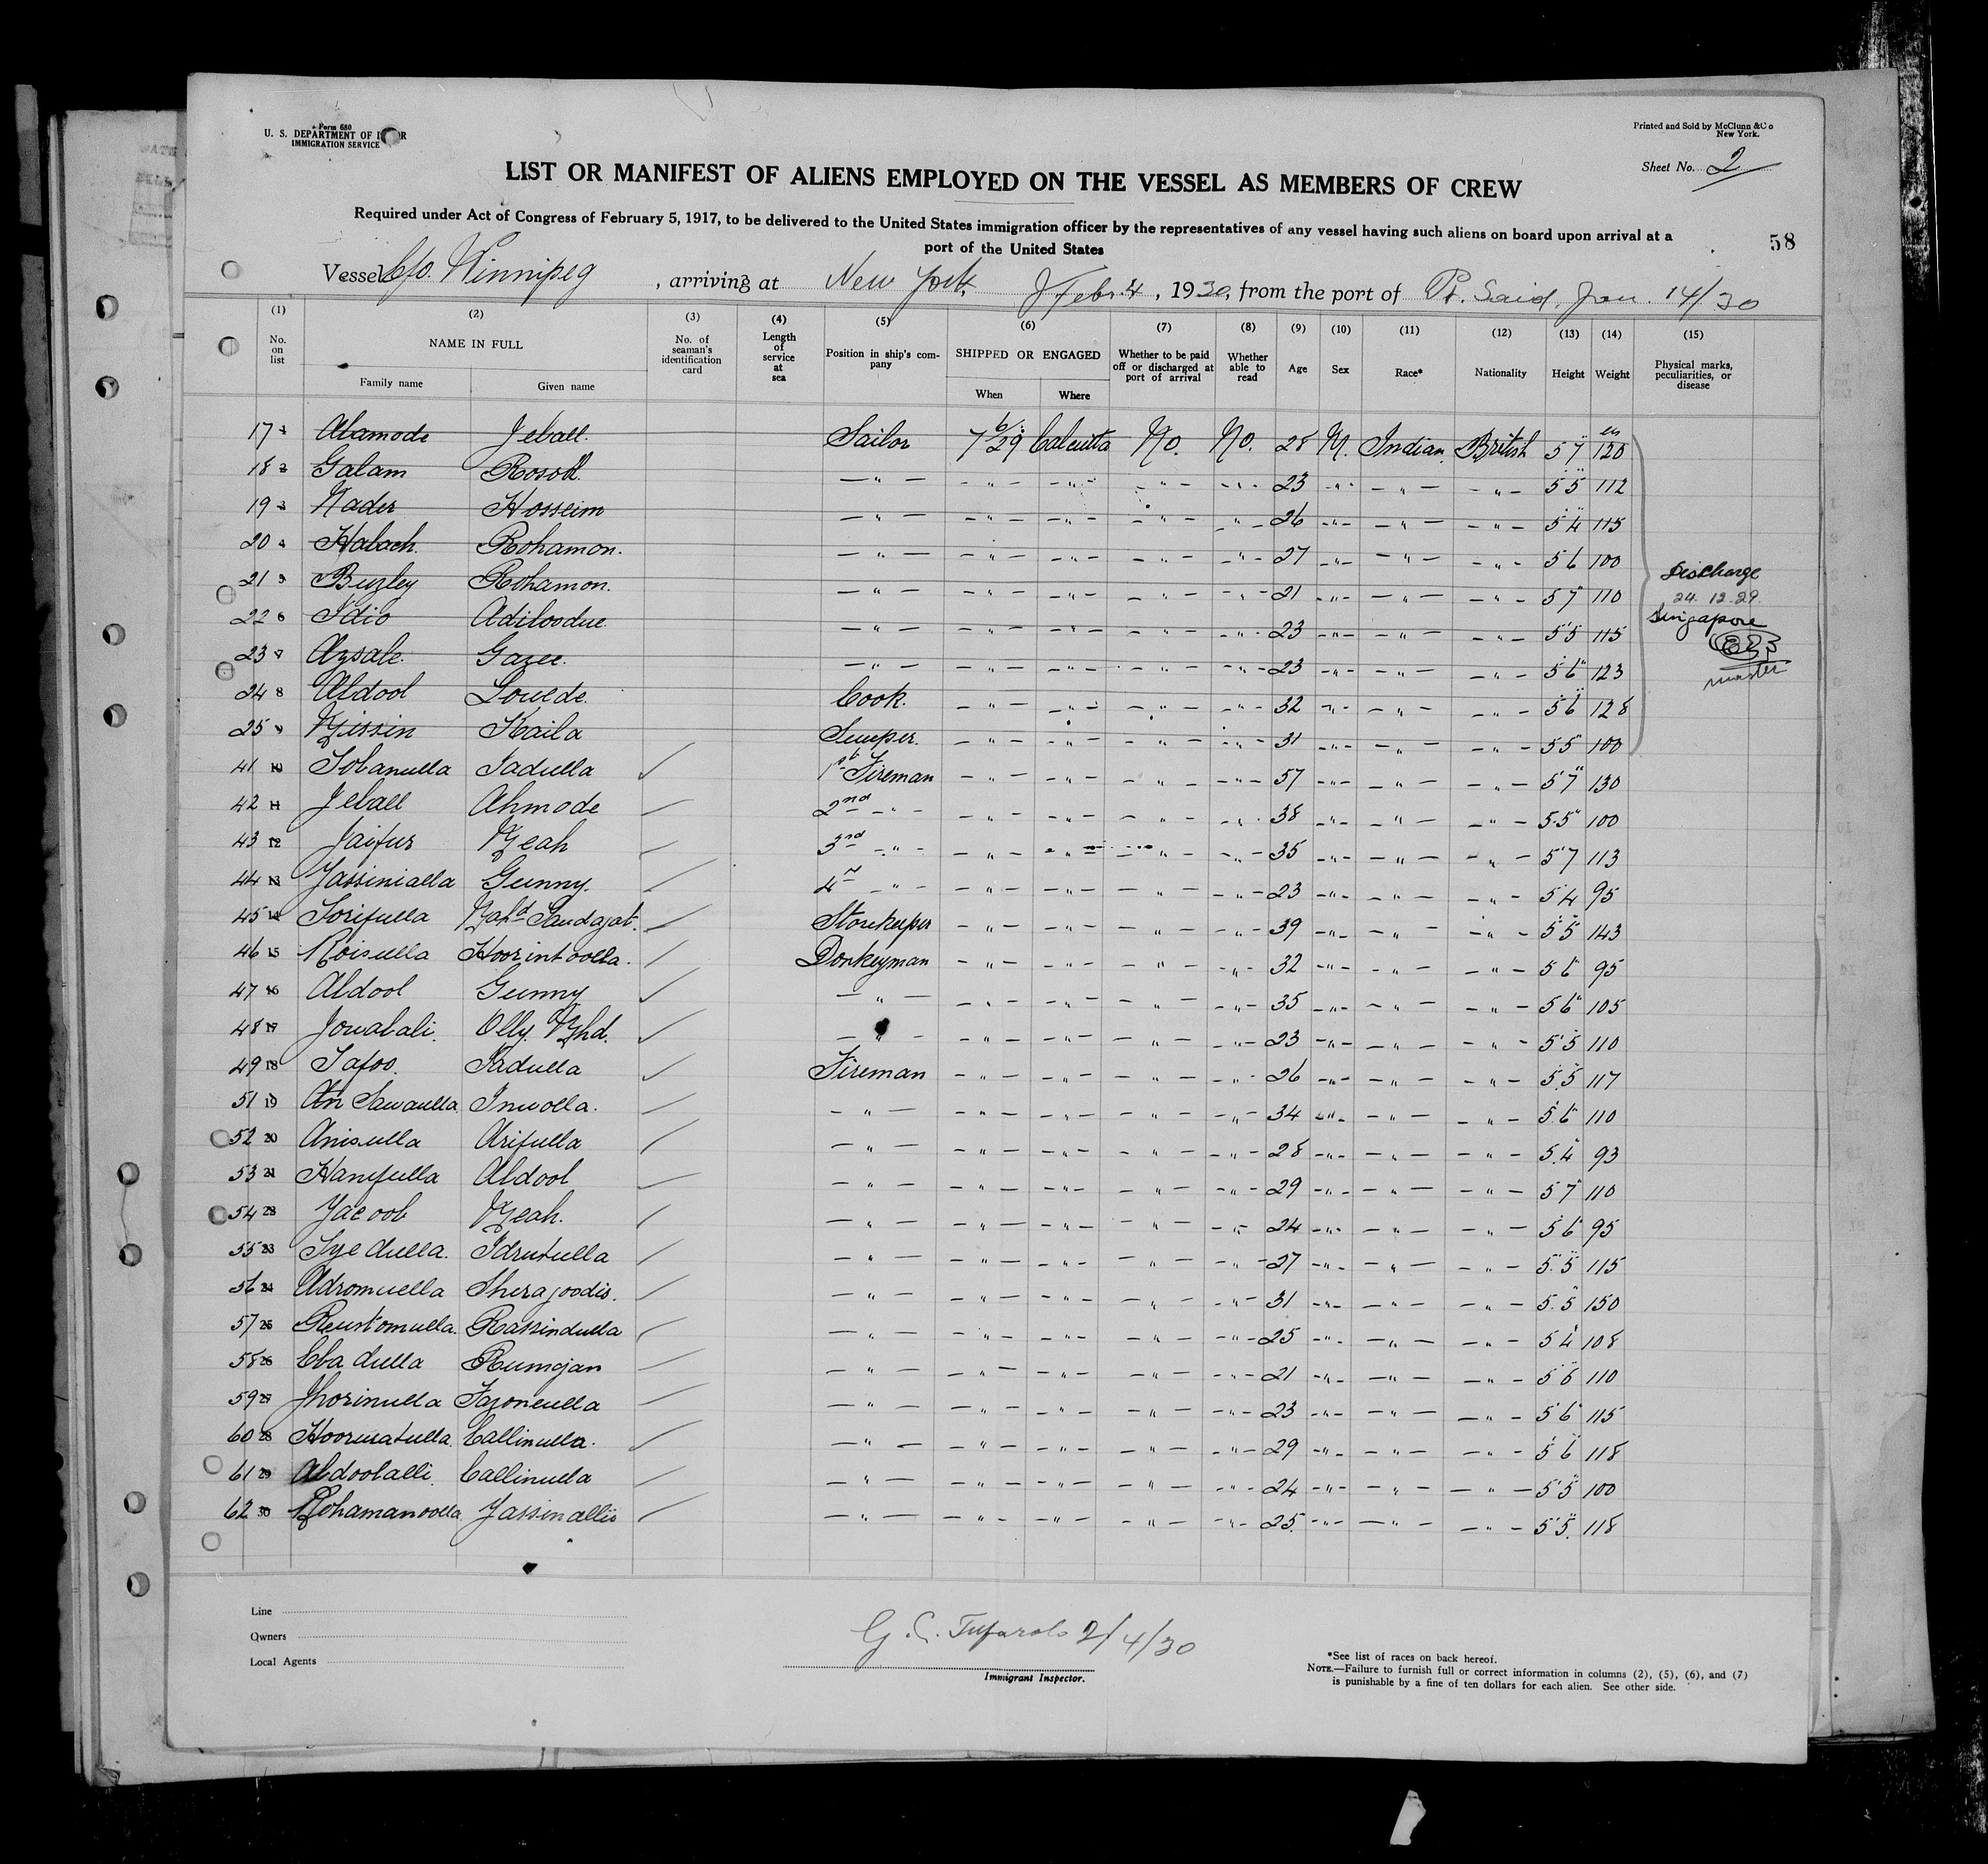 Form 680
U. S. DEPARTMENT OF L R
IMMIGRATION SERVICE
Printed and Sold by McClunn & Co
New York.
Sheet No. 2
LIST OR MANIFEST OF ALIENS EMPLOYED ON THE VESSEL AS MEMBERS OF CREW
Required under Act of Congress of February 5, 1917, to be delivered to the United States immigration officer by the representatives of any vessel having such aliens on board upon arrival at a
port of the United States
58
Vessel Winnipeg, arriving at New York, Febr. 4, 1930, from the port of Pt. Said, Jan. 14/30
(1) (2) (3) (4) (5) (6) (7) (8) (9) (10) (11) (12) (13) (14) (15)
No. on list NAME IN FULL No. of seaman's identification card Length of service at sea Position in ship's company SHIPPED OR ENGAGED Whether to be paid off or discharged at port of arrival Whether able to read Age Sex Race* Nationality Height Weight Physical marks, peculiarities, or disease
Family name Given name When Where
17 Alamode Jeball. Sailor 7/6 29 Calcutta No. No. 28 M. Indian British 5'7" 120
18 Galam Rosool. — " — 23 5'5" 112
19 Nader Hosseim — " — 26 5'4" 115
20 Habach. Rohamon. — " — 27 5'6 100
21 Buzley Rohamon. — " — 21 5'7" 110
22 Idio Adiloodue — " — 23 5'5" 115
23 Azsale. Gazee. — " — 23 5'6" 123
24 Abdool Louede. Cook. 32 5'6" 128
25 Kaila 31 5'5" 100
Discharge
24. 12. 29.
Singapore
master
41 10 Sobanulla Sadulla 1st Fireman 57 5'7" 130
42 11 Jeball Ahmode 2nd — " — 38 5'5" 100
43 12 Jaifur Meah 3rd — " — 35 5'7 113
44 13 Jassinialla Gunny. 4th — " — 23 5'4 95
45 14 Sorifulla Storekeeper 39 5'5" 143
46 15 Roisulla Hoorintoolla. Donkeyman 32 5'6" 95
47 16 Abdool Gunny — " — 35 5'6" 105
48 17 Jowabali. Olly Mhd. — " — 23 5'5" 110
49 18 Safoo. Sadulla Fireman 26 5'5" 117
51 19 An Sawaulla Inwolla. — " — 34 5'6" 110
52 20 Anisulla Arifulla — " — 28 5'4" 93
53 21 Hanifulla Abdool — " — 29 5'7" 110
54 22 Jacoob Meah. — " — 24 5'6" 95
55 23 Syedulla. Idrutulla — " — 27 5'5" 115
56 24 Adromuella Sherajoodis. — " — 31 5'5" 150
57 25 Reustomulla. Rassindulla — " — 25 5'4" 108
58 26 Ebadulla Rumojan — " — 21 5'5" 110
59 27 Jhorinulla Fazoneulla — " — 23 5'6" 115
60 28 Hoormatulla Callinulla. — " — 29 5'6" 118
61 29 Abdoolalli Callinulla — " — 24 5'5" 100
62 30 Mohamanoolla Jassinallis — " — 25. 5'5". 118
Line
Owners
Local Agents
2/4/30
Immigrant Inspector.
*See list of races on back hereof.
NOTE.—Failure to furnish full or correct information in columns (2), (5), (6), and (7)
is punishable by a fine of ten dollars for each alien. See other side.